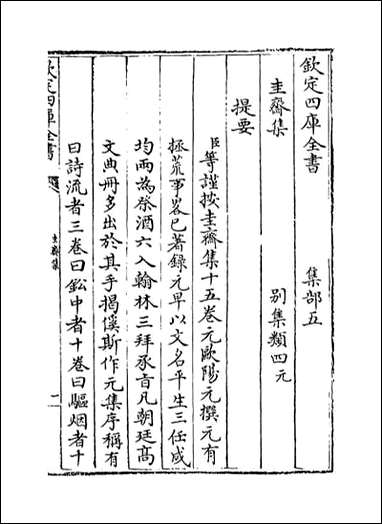 欽定四庫全書
集部五
圭齋集
别集類四元
提要
臣等謹按圭齋集十五卷元歐陽元撰元有
拯荒事畧已著錄元早以文名平生三任成
均兩為祭酒六入翰林三拜承旨凡朝廷高
文典冊多出於其手揭傒斯作元集序稱有
曰詩流者三卷曰鈆中者十卷曰驅烟者十
欽定四庫全書
圭齋集
一